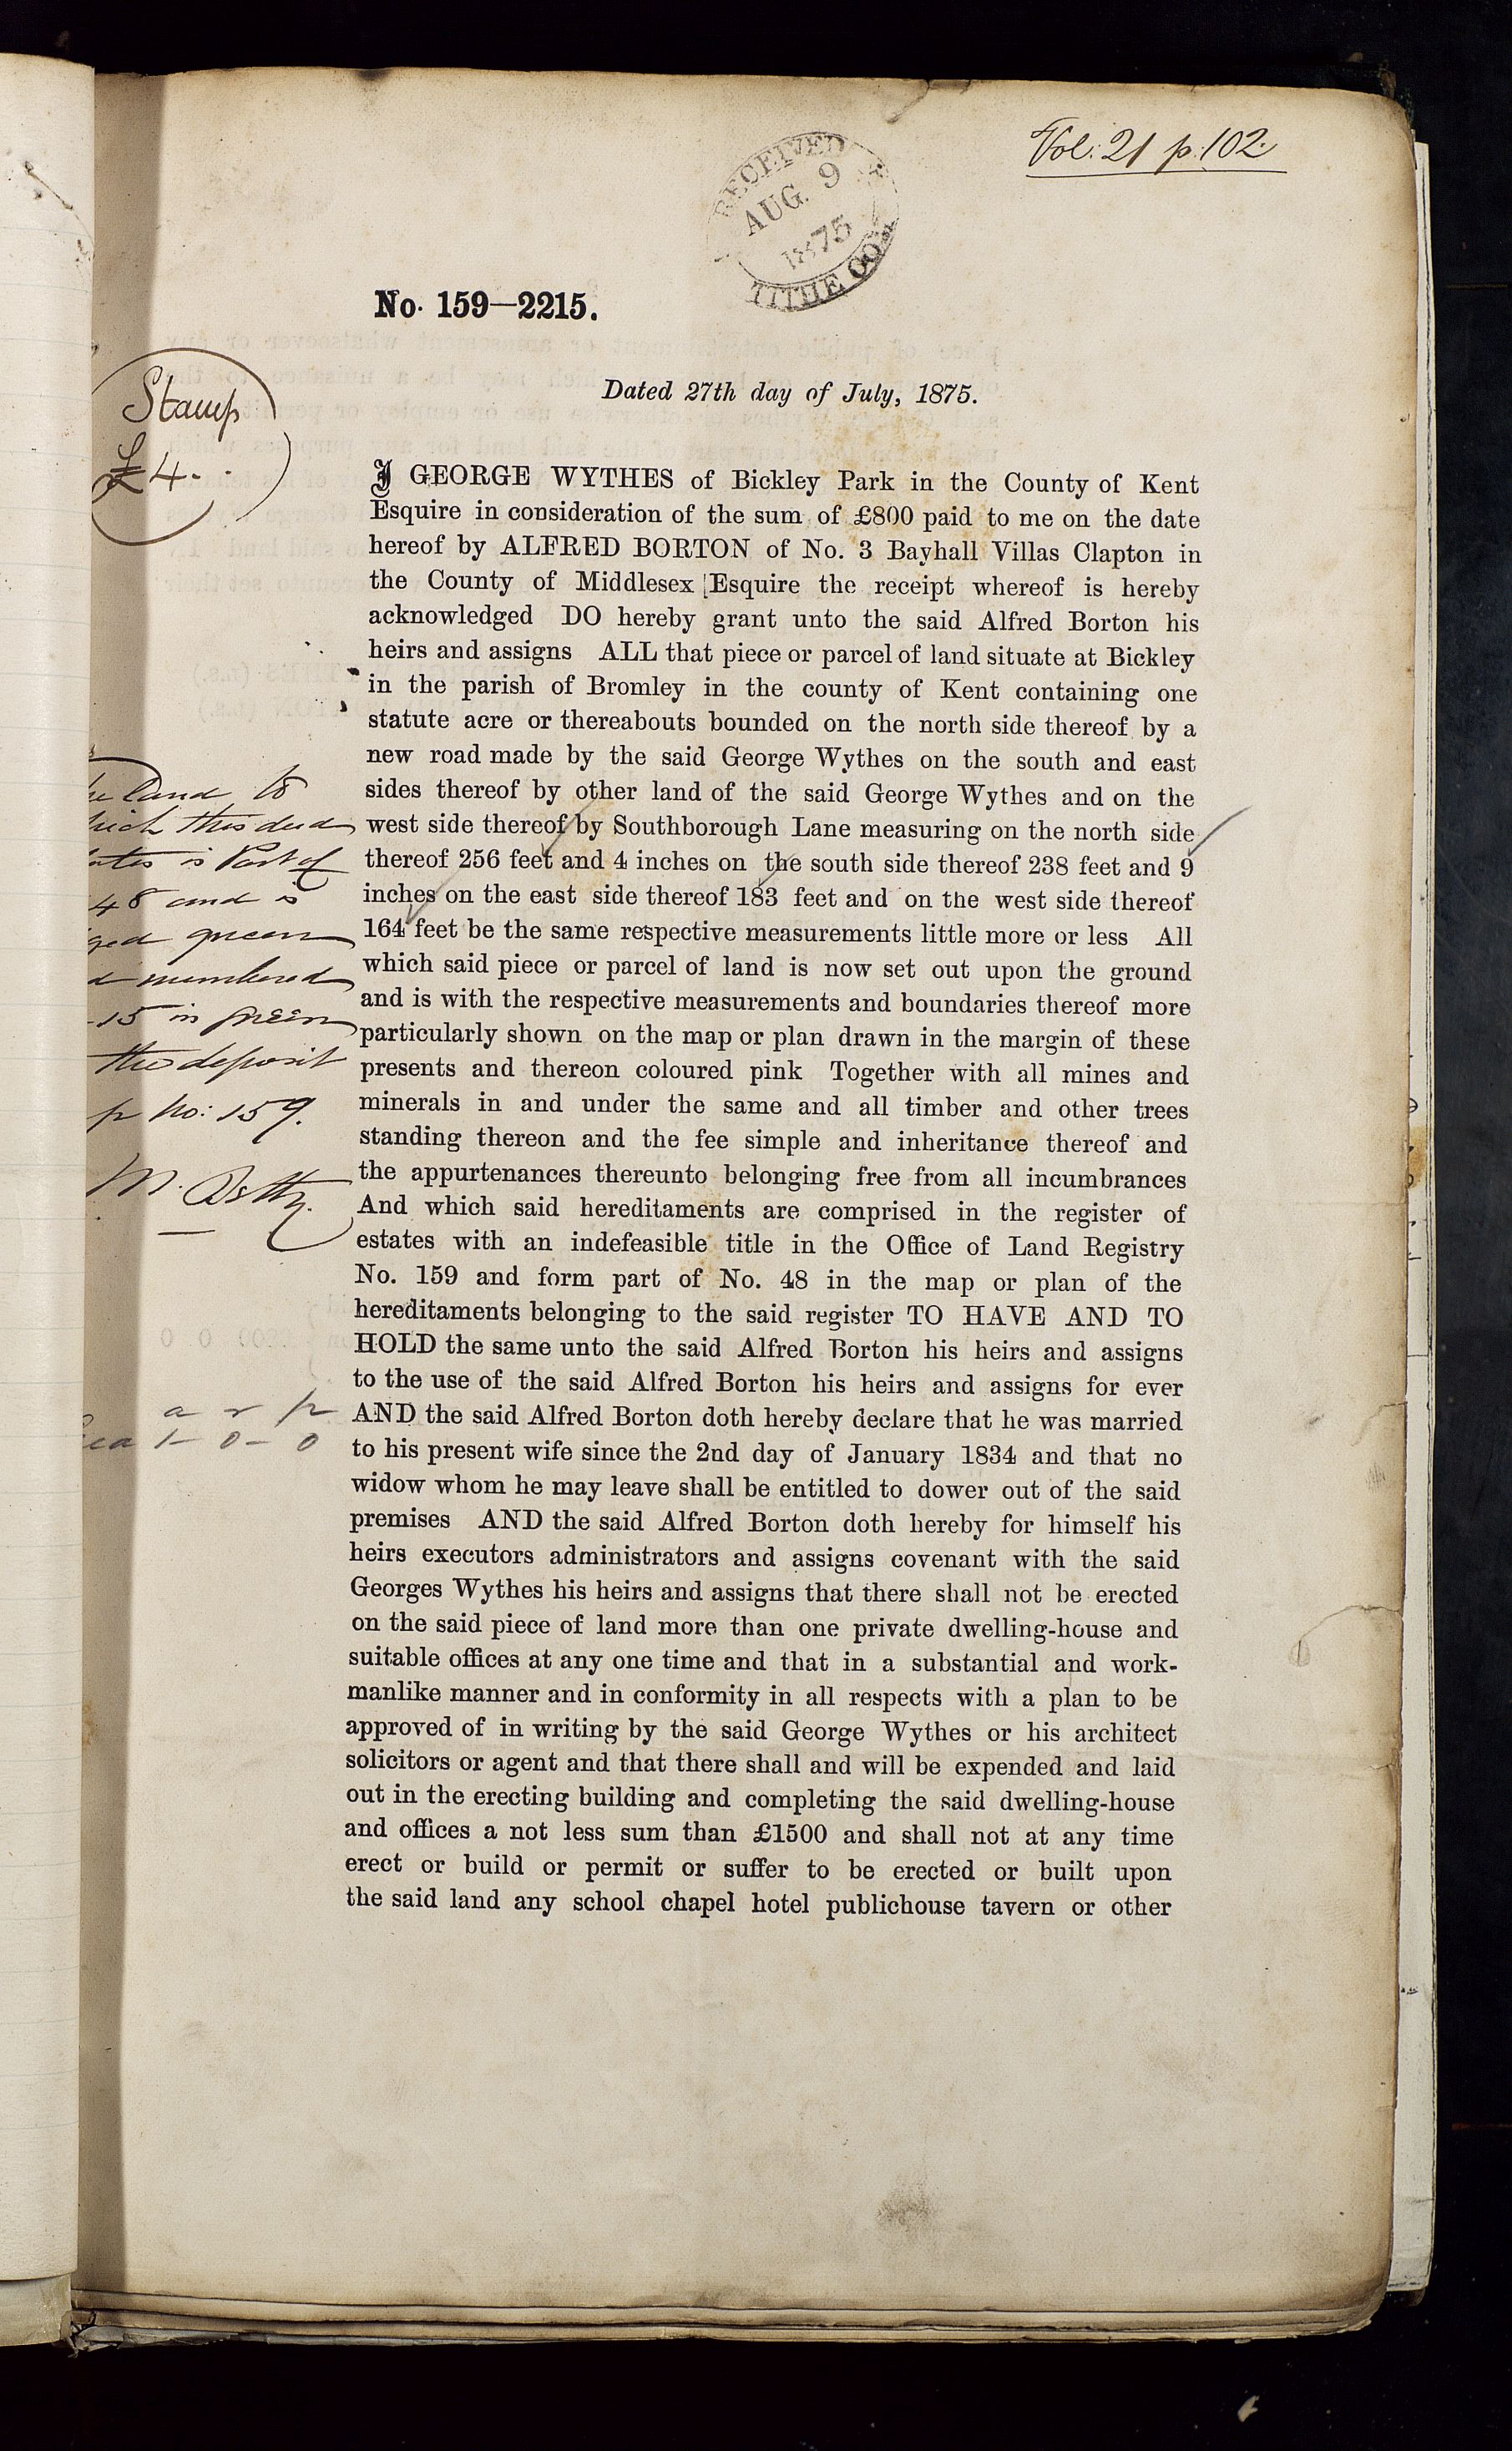 Vol: 21 p. 102
RECEIVED
AUG. 9
1875
TITHE CO
No. 159—2215.
Stamp
£4 . .
Dated 27th day of July, 1875.
I GEORGE WYTHES of Bickley Park in the County of Kent
Esquire in consideration of the sum of £800 paid to me on the date
hereof by ALFRED BORTON of No. 3 Bayhall Villas Clapton in
the County of Middlesex Esquire the receipt whereof is hereby
acknowledged DO hereby grant unto the said Alfred Borton his
heirs and assigns ALL that piece or parcel of land situate at Bickley
in the parish of Bromley in the county of Kent containing one
statute acre or thereabouts bounded on the north side thereof by a
new road made by the said George Wythes on the south and east
sides thereof by other land of the said George Wythes and on the
west side thereof by Southborough Lane measuring on the north side
thereof 256 feet and 4 inches on the south side thereof 238 feet and 9
inches on the east side thereof 183 feet and on the west side thereof
164 feet be the same respective measurements little more or less All
which said piece or parcel of land is now set out upon the ground
and is with the respective measurements and boundaries thereof more
particularly shown on the map or plan drawn in the margin of these
presents and thereon coloured pink Together with all mines and
minerals in and under the same and all timber and other trees
standing thereon and the fee simple and inheritance thereof and
the appurtenances thereunto belonging free from all incumbrances
And which said hereditaments are comprised in the register of
estates with an indefeasible title in the Office of Land Registry
No. 159 and form part of No. 48 in the map or plan of the
hereditaments belonging to the said register TO HAVE AND TO
HOLD the same unto the said Alfred Borton his heirs and assigns
to the use of the said Alfred Borton his heirs and assigns for ever
AND the said Alfred Borton doth hereby declare that he was married
to his present wife since the 2nd day of January 1834 and that no
widow whom he may leave shall be entitled to dower out of the said
premises AND the said Alfred Borton doth hereby for himself his
heirs executors administrators and assigns covenant with the said
Georges Wythes his heirs and assigns that there shall not be erected
on the said piece of land more than one private dwelling-house and
suitable offices at any one time and that in a substantial and work-
manlike manner and in conformity in all respects with a plan to be
approved of in writing by the said George Wythes or his architect
solicitors or agent and that there shall and will be expended and laid
out in the erecting building and completing the said dwelling-house
and offices a not less sum than £1500 and shall not at any time
erect or build or permit or suffer to be erected or built upon
the said land any school chapel hotel publichouse tavern or other
land to
this deed
is Part of
48 and is
green
numbered
15 in green
the deposit
No: 159.
a r p
1 - 0 - 0